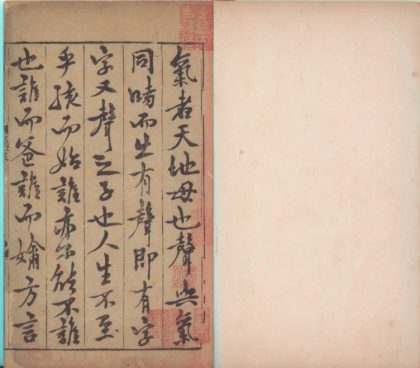 氣者天地母也聲與氣
同時而生有聲即有字
字又聲之子也人生不至
乎孩而始誰亦不能不誰
也誰而爸誰而方言